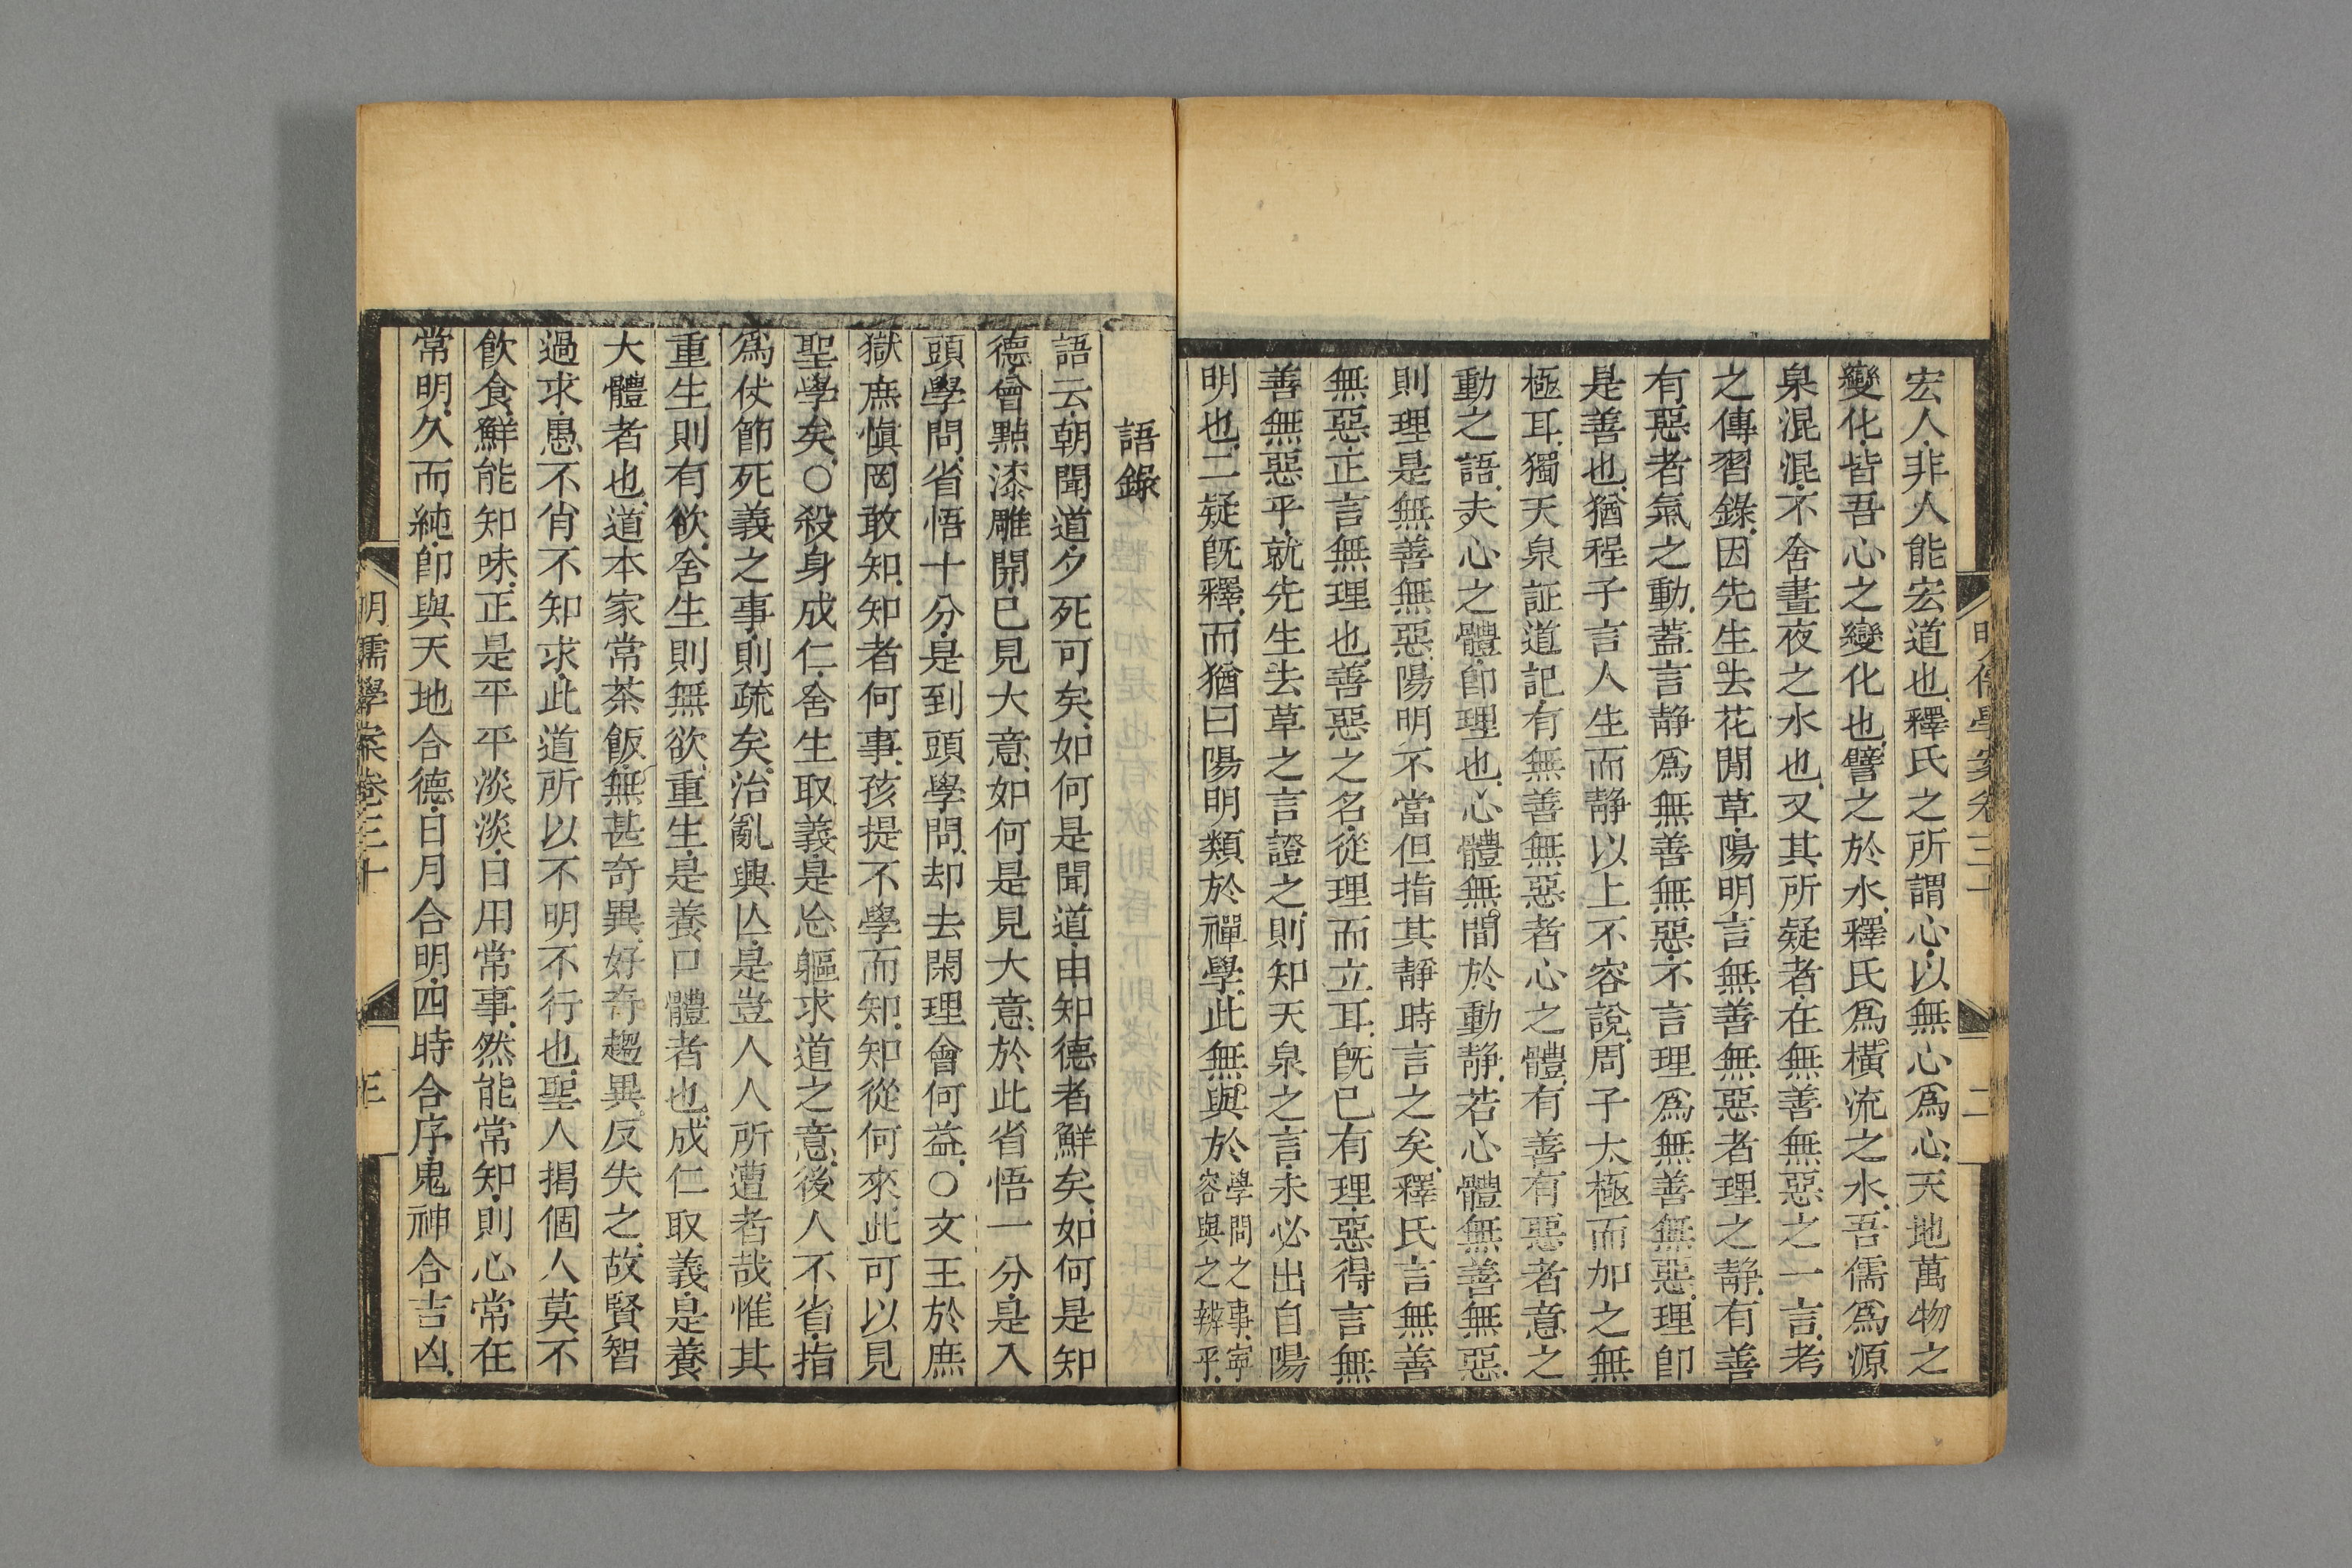 宏人非人能宏道也釋氏之所謂心以無心爲心天地萬物之
變化皆吾心之變化也譬之於水釋氏爲橫流之水吾儒爲源
泉混混不舍晝夜之水也又其所疑者在無善無惡之一言考
之傳習錄因先生去花閒草陽明言無善無惡者理之靜有善
有惡者氣之動蓋言靜爲無善無惡不言理爲無善無惡理卽
是善也猶程子言人生而靜以上不容說周子太極而加之無
極耳獨天泉証道記有無善無惡者心之體有善有惡者意之
動之語夫心之體卽理也心體無間於動靜若心體無善無惡
則理是無善無惡陽明不當但指其靜時言之矣釋氏言無善
無惡正言無理也善惡之名從理而立耳旣已有理惡得言無
善無惡乎就先生去草之言證之則知天泉之言未必出自陽
明也二疑旣釋而猶曰陽明類於禪學此無與於學問之事寧
容與之辨乎
明儒學案卷三十
二
語錄
語云朝聞道夕死可矣如何是聞道由知德者鮮矣如何是知
德會點漆雕開已見大意如何是見大意於此省悟一分是入
頭學問省悟十分是到頭學問却去閑理會何益○文王於庶
獄庶愼罔敢知知者何事孩提不學而知知從何來此可以見
聖學矣○殺身成仁舍生取義是忩軀求道之意後人不省指
爲仗節死義之事則疏矣治亂興亾是豈人人所遭者哉惟其
重生則有欲舍生則無欲重生是養口體者也成仁取義是養
大體者也道本家常茶飯無甚奇異好奇趨異反失之故賢智
過求愚不肖不知求此道所以不明不行也聖人揭個人莫不
飲食鮮能知味正是平平淡淡日用常事然能常知則心常在
常明久而純卽與天地合德日月合明四時合序鬼神合吉凶
明儒學案卷三十
三